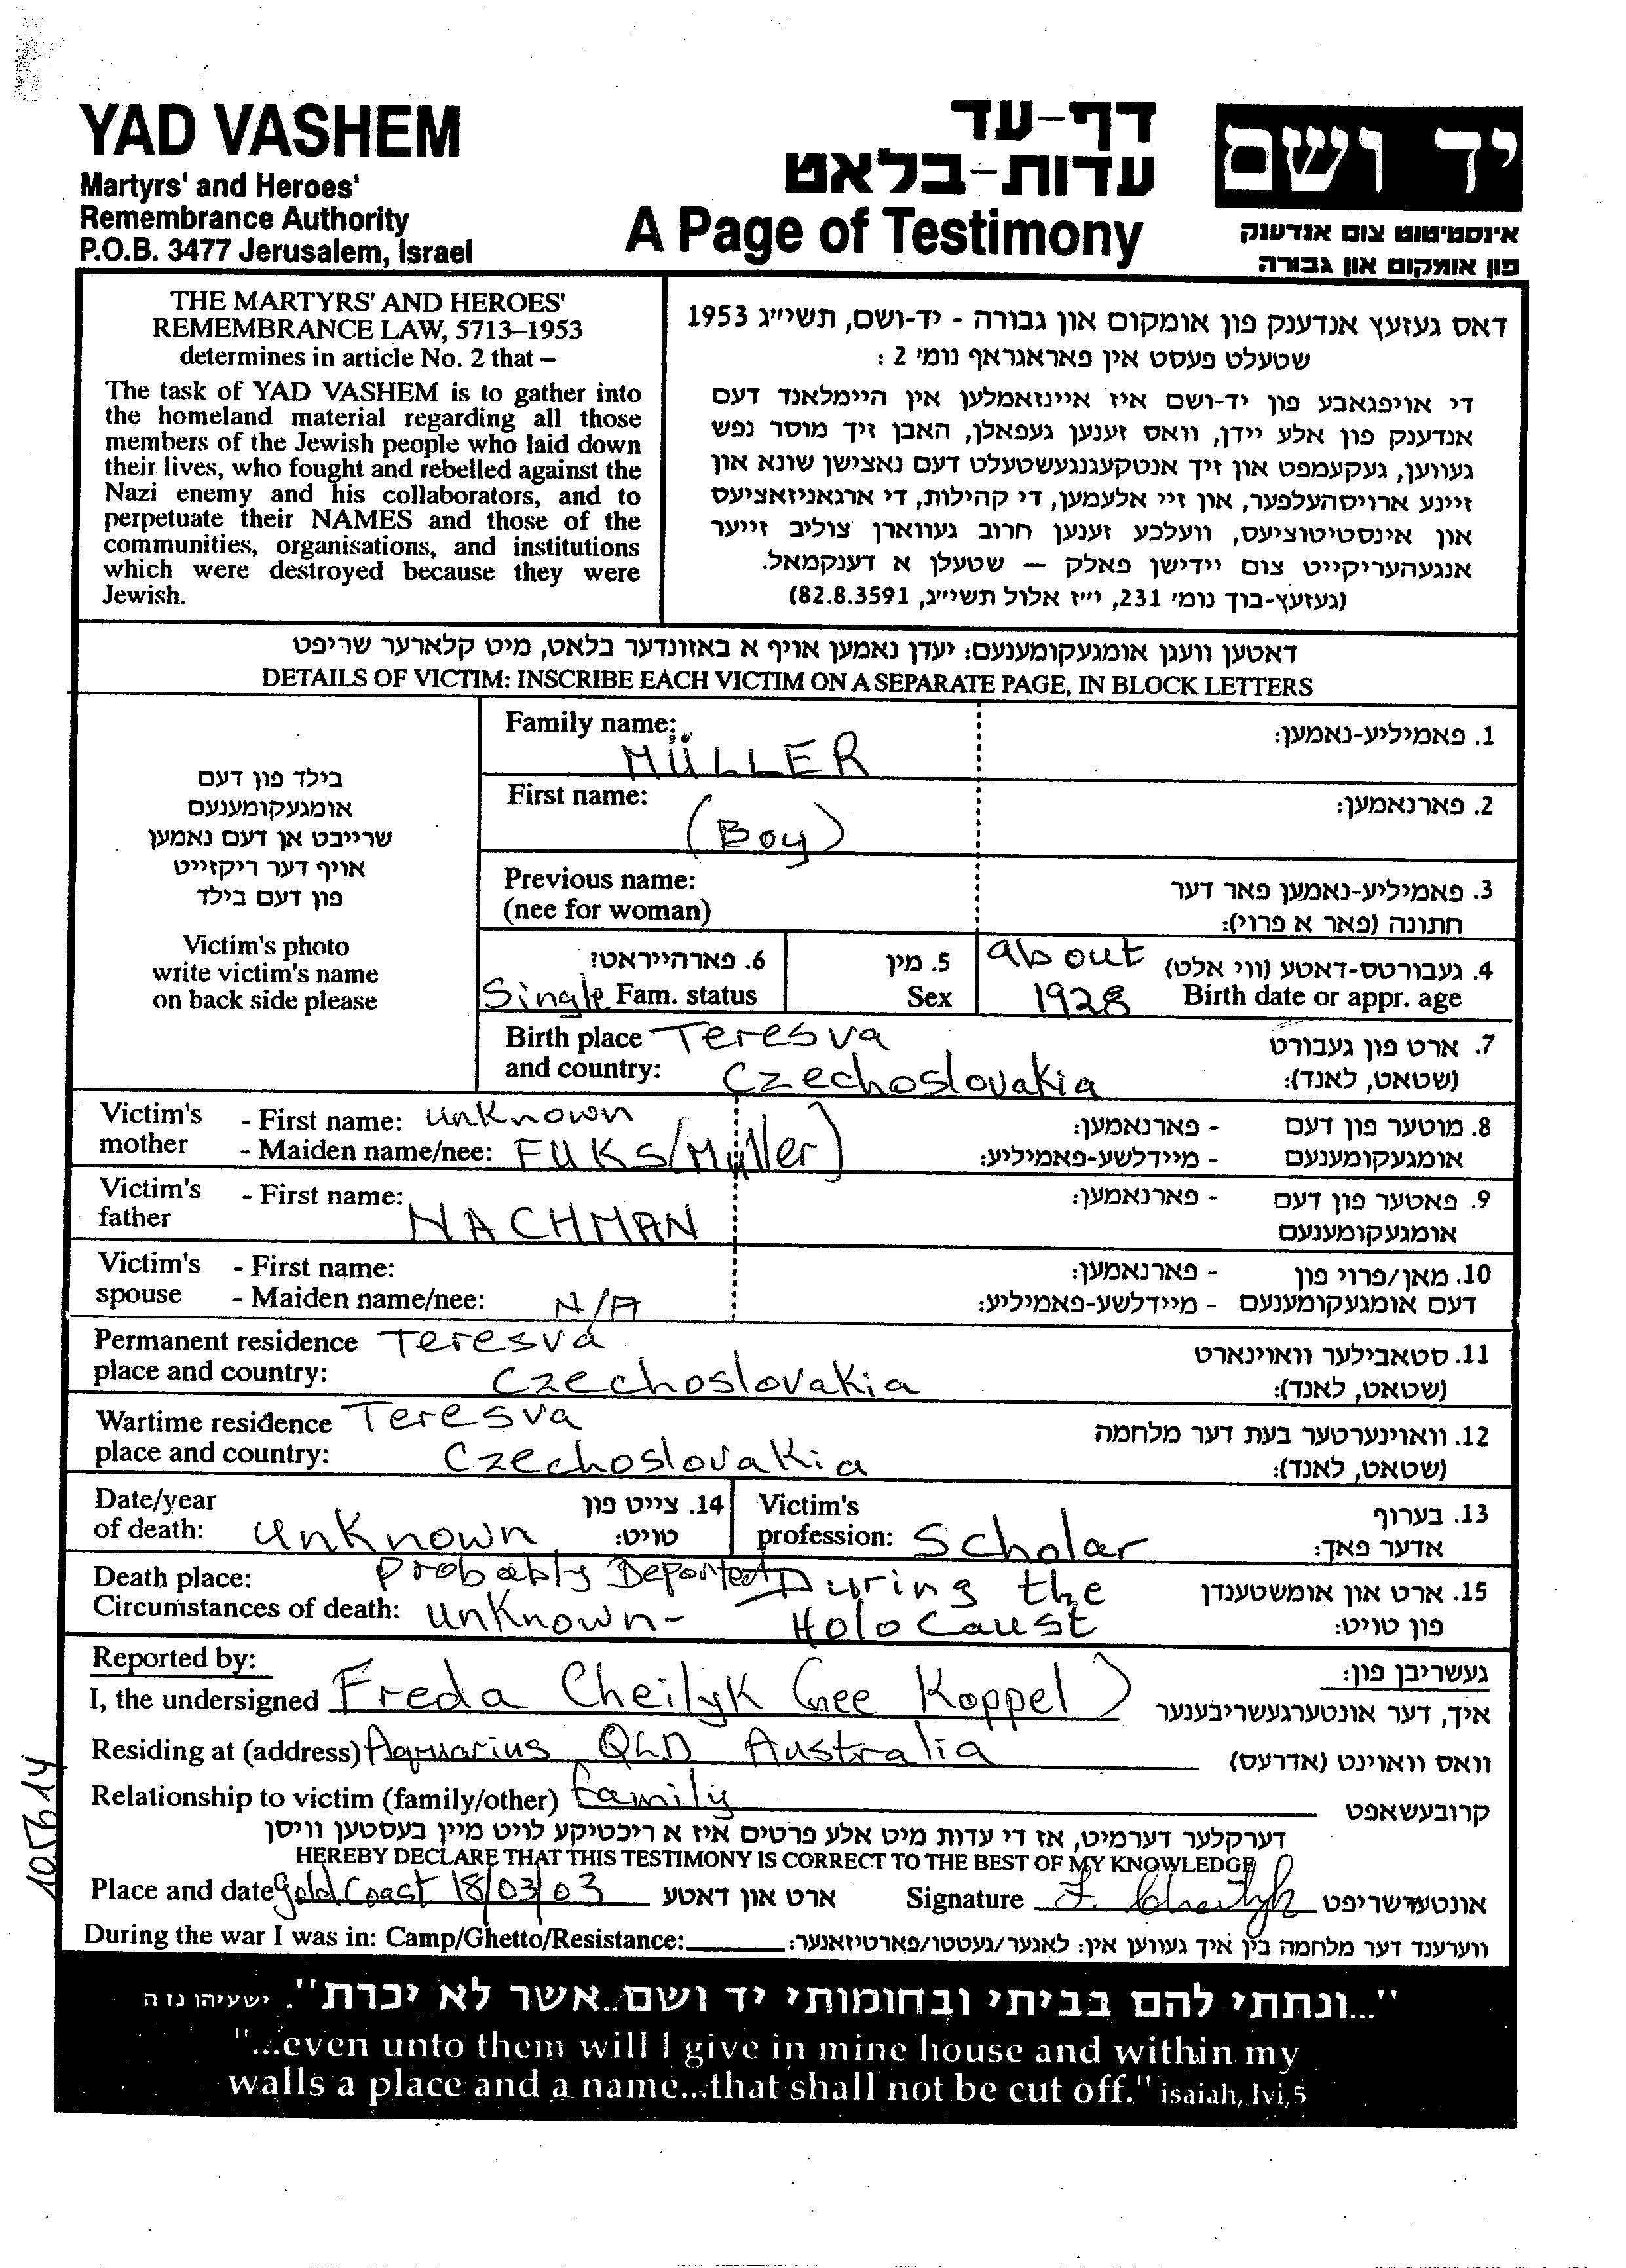 YAD VASHEM
Martyrs' and Heroes'
Remembrance Authority
P.O.B. 3477 Jerusalem, Israel
דף-עד
עדות-בלאט
A Page of Testimony
יד ושם
אינסטיטוט צום אנדענק
פון אומקום און גבורה
THE MARTYRS' AND HEROES'
REMEMBRANCE LAW, 5713–1953
determines in article No. 2 that –
The task of YAD VASHEM is to gather into
the homeland material regarding all those
members of the Jewish people who laid down
their lives, who fought and rebelled against the
Nazi enemy and his collaborators, and to
perpetuate their NAMES and those of the
communities, organisations, and institutions
which were destroyed because they were
Jewish.
דאס געזעץ אנדענק פון אומקום און גבורה - יד-ושם, תשי״ג 1953
שטעלט פעסט אין פאראגראף נומ׳ 2 :
די אויפגאבע פון יד-ושם איז איינזאמלען אין היימלאנד דעם
אנדענק פון אלע יידן, וואס זענען געפאלן, האבן זיך מוסר נפש
געווען, געקעמפט און זיך אנטקעגנגעשטעלט דעם נאצישן שונא און
זיינע ארויסהעלפער, און זיי אלעמען, די קהילות, די ארגאניזאציעס
און אינסטיטוציעס, וועלכע זענען חרוב געווארן צוליב זייער
אנגעהעריקייט צום יידישן פאלק – שטעלן א דענקמאל.
(געזעץ-בוך נומ׳ 231, י״ז אלול תשי״ג, 82.8.3591)
דאטען וועגן אומגעקומענעם: יעדן נאמען אויף א באזונדער בלאט, מיט קלארער שריפט
DETAILS OF VICTIM: INSCRIBE EACH VICTIM ON A SEPARATE PAGE, IN BLOCK LETTERS
בילד פון דעם
אומגעקומענעם
שרייבט אן דעם נאמען
אויף דער ריקזייט
פון דעם בילד
Victim's photo
write victim's name
on back side please
Family name: MÜLLER 1. פאמיליע-נאמען:
First name: (Boy) 2. פארנאמען:
Previous name: 3. פאמיליע-נאמען פאר דער
(nee for woman) חתונה (פאר א פרוי):
6. פארהייראט? 5. מין about 4. געבורטס-דאטע (ווי אלט)
Single Fam. status Sex 1928 Birth date or appr. age
Birth place Teresva 7. ארט פון געבורט
and country: Czechoslovakia (שטאט, לאנד):
Victim's - First name: unknown - פארנאמען: 8. מוטער פון דעם
mother - Maiden name/nee: FUKS/Müller) - מיידלשע-פאמיליע: אומגעקומענעם
Victim's - First name: - פארנאמען: 9. פאטער פון דעם
father NACHMAN אומגעקומענעם
Victim's - First name: - פארנאמען: 10. מאן/פרוי פון
spouse - Maiden name/nee: N/A - מיידלשע-פאמיליע: דעם אומגעקומענעם
Permanent residence Teresva 11. סטאבילער וואוינארט
place and country: Czechoslovakia (שטאט, לאנד):
Wartime residence Teresva 12. וואוינערטער בעת דער מלחמה
place and country: Czechoslovakia (שטאט, לאנד):
Date/year 14. צייט פון Victim's 13. בערוף
of death: unknown טויט: profession: Scholar אדער פאך:
Death place: Probably Deported During the 15. ארט און אומשטענדן
Circumstances of death: unknown- Holocaust פון טויט:
Reported by: געשריבן פון:
I, the undersigned Freda Cheilyk (nee Koppel) איך, דער אונטערגעשריבענער
Residing at (address) Aquarius QLD Australia וואס וואוינט (אדרעס)
Relationship to victim (family/other) family קרובעשאפט
דערקלער דערמיט, אז די עדות מיט אלע פרטים איז א ריכטיקע לויט מיין בעסטען וויסן
HEREBY DECLARE THAT THIS TESTIMONY IS CORRECT TO THE BEST OF MY KNOWLEDGE
Place and date Gold Coast 18/03/03 ארט און דאטע Signature F. Cheilyk אונטערשריפט
During the war I was in: Camp/Ghetto/Resistance: ווערענד דער מלחמה בין איך געווען אין: לאגער/געטטו/פארטיזאנער:
105614
"...ונתתי להם בביתי ובחומותי יד ושם...אשר לא יכרת". ישעיהו נז ה
"...even unto them will I give in mine house and within my
walls a place and a name...that shall not be cut off." isaiah, lvi,5